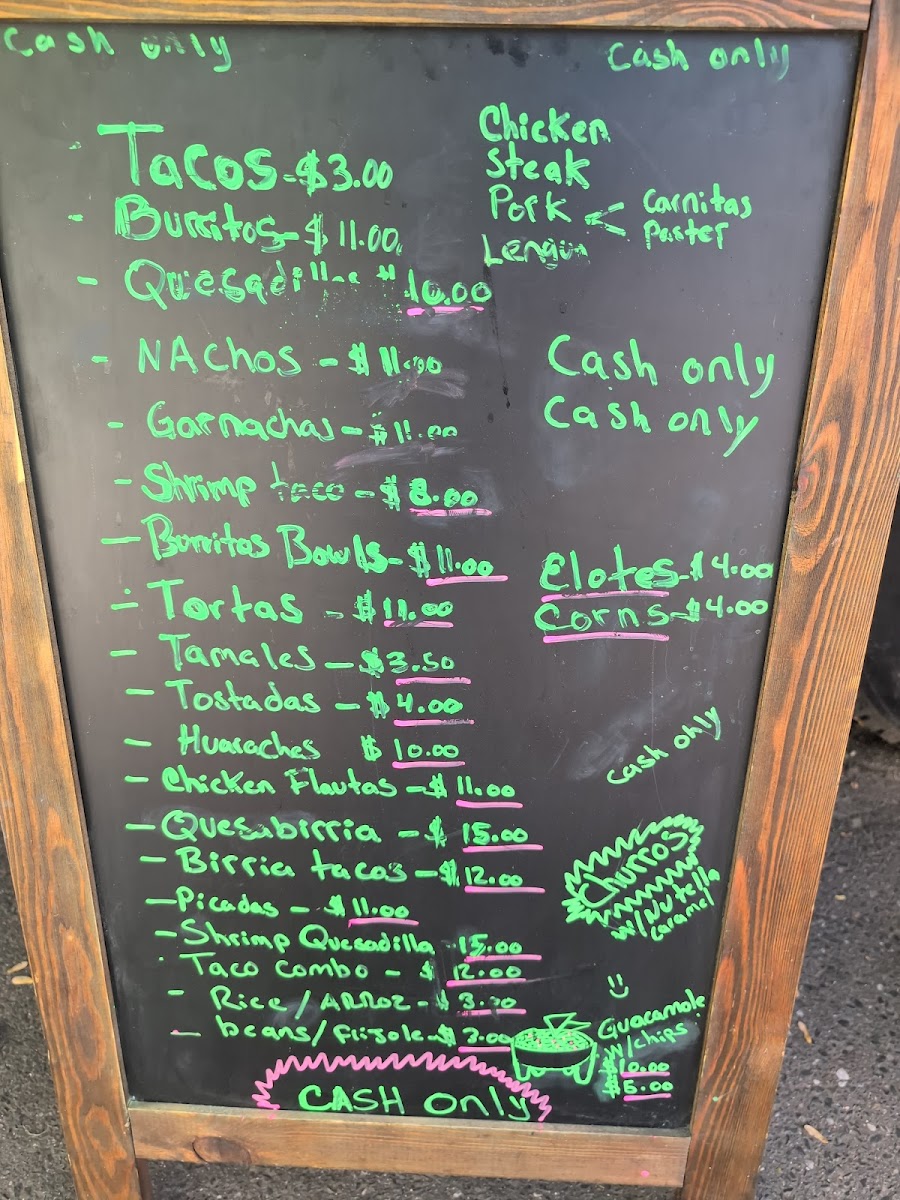 Cash only
Cash only
- Tacos - $3.00
- Burritos - $11.00
- Quesadilla $10.00
- NAchos - $11.00
- Garnachas - $11.00
- Shrimp taco - $8.00
- Burritos Bowls - $11.00
- Tortas - $11.00
- Tamales - $3.50
- Tostadas - $4.00
- Huaraches $10.00
- Chicken Flautas - $11.00
- Quesabirria - $15.00
- Birria tacos - $12.00
- Picadas - $11.00
- Shrimp Quesadilla - 15.00
- Taco combo - $12.00
- Rice / ARROZ - $3.00
- beans / FriJole - $3.00
CASH only
Chicken
Steak
Pork < Carnitas
Paster
Lengua
Cash only
Cash only
Elotes - $4.00
Corns - $4.00
Cash only
Churros
w/Nutella
caramel
Guacamole
w/chips
$10.00
$5.00